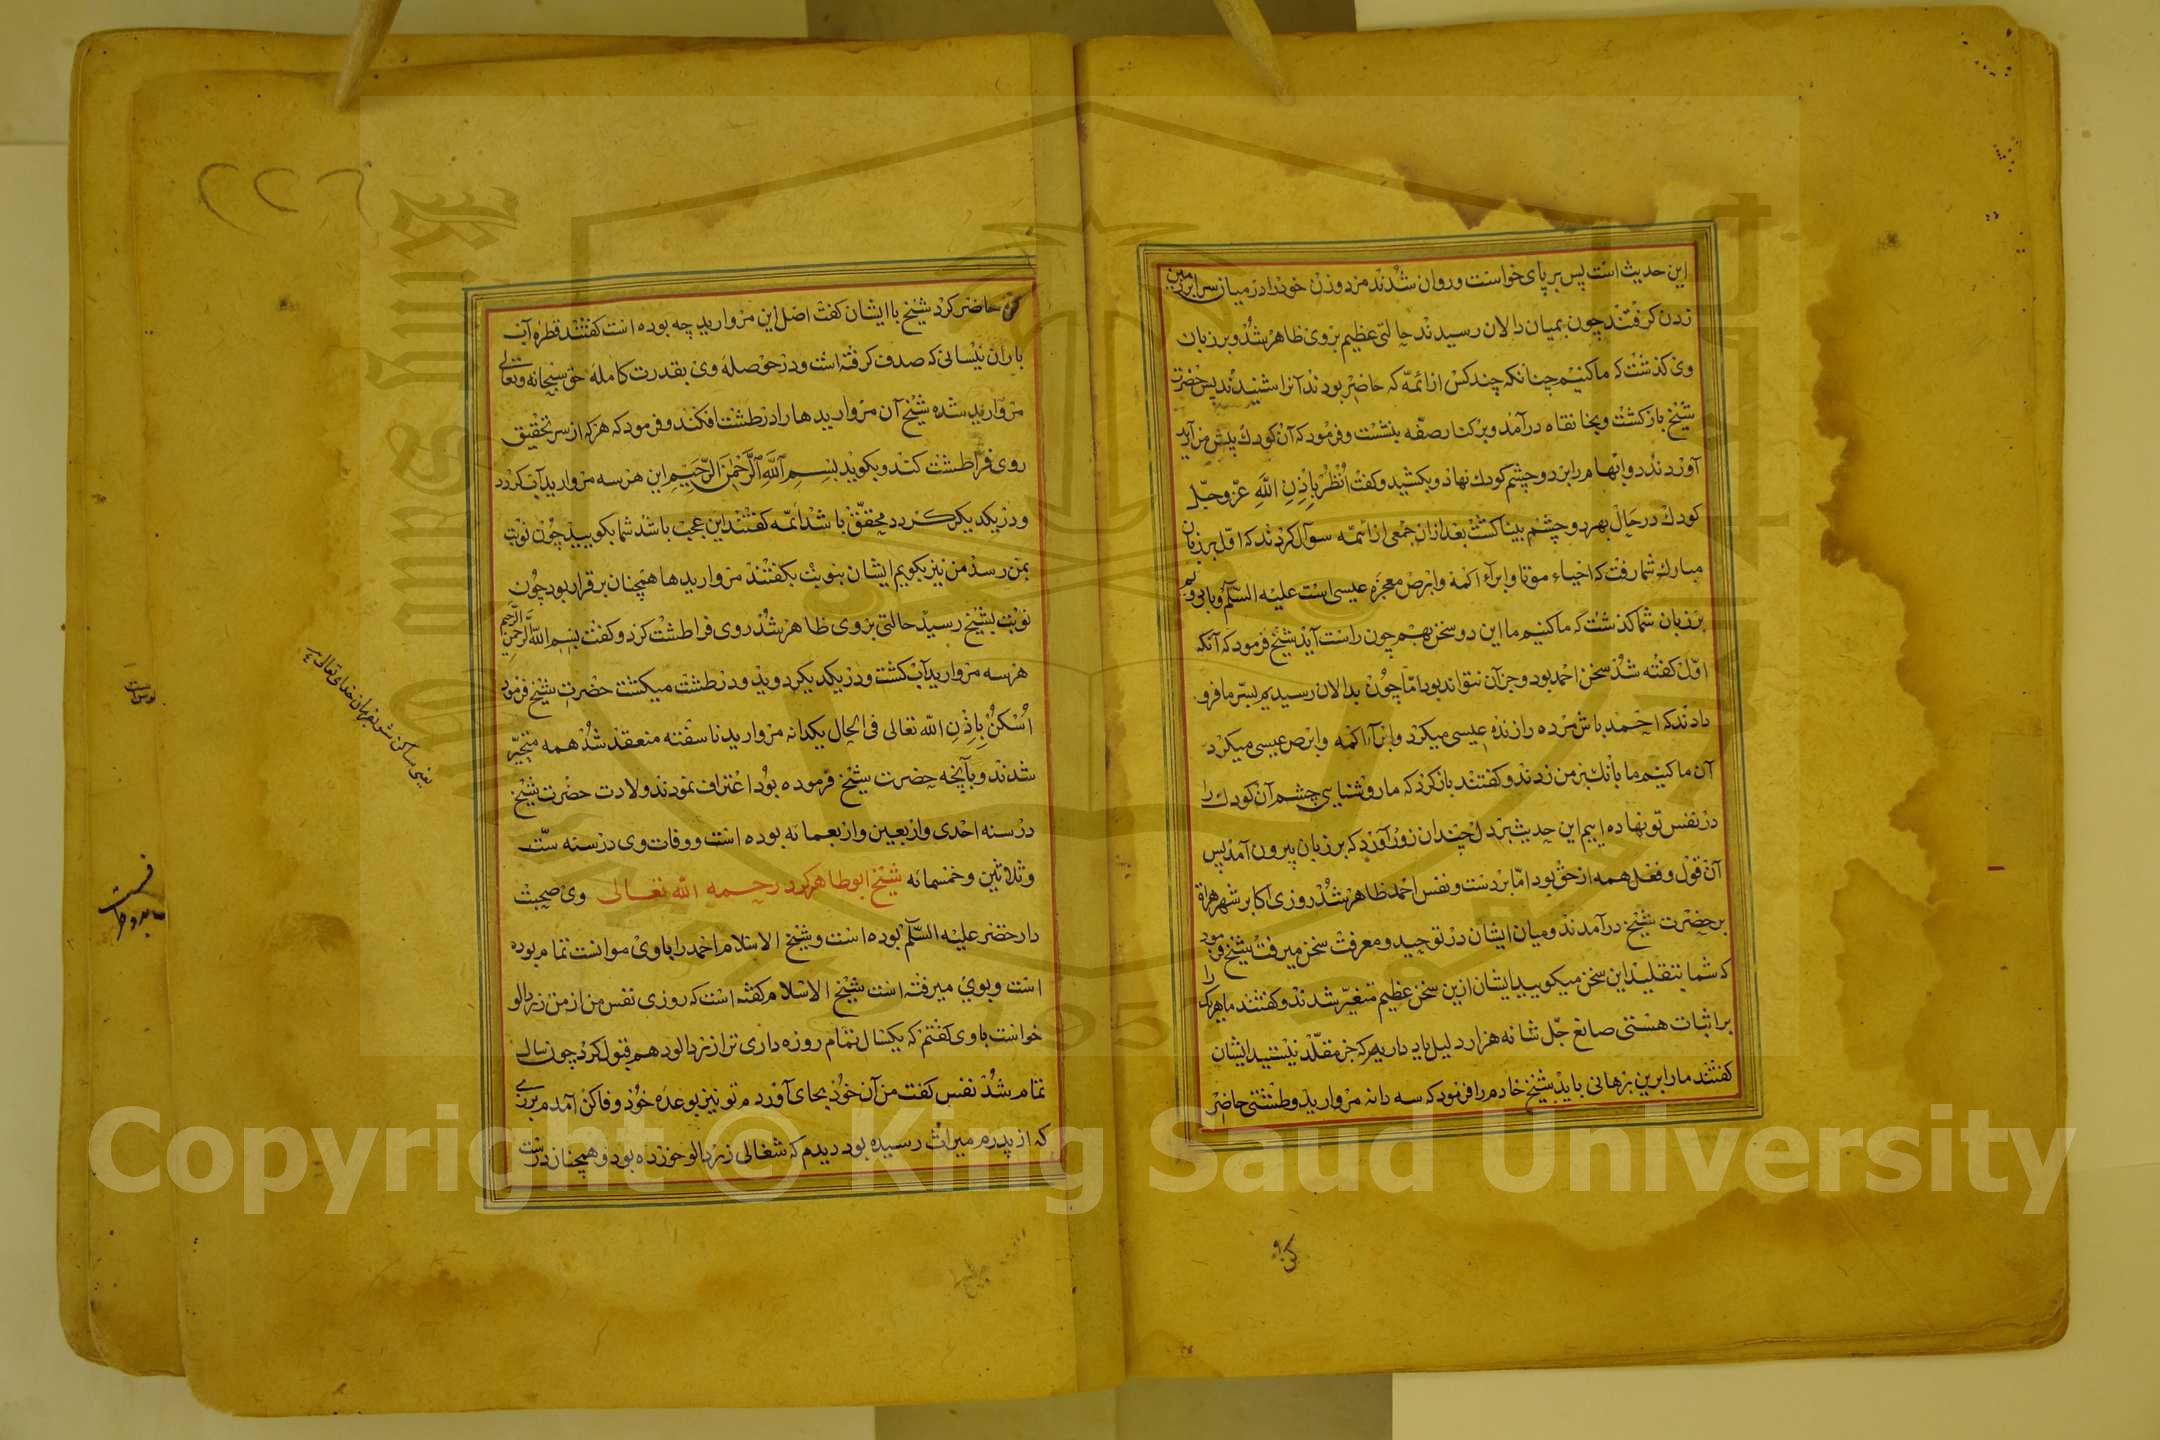 این حدیث است پس بر پای خواست و روان شدند مرد و زن خود را در میان سرا بر زمین
زدن گرفتند چون بمیان دالان رسیدند حالتی عظیم بر وی ظاهر شد و بر زبان
وی گذشت که ما کنیم چنانکه چند کس از ائمّه که حاضر بودند آنرا شنیدند پس حضرت
شیخ باز گشت و بخانقاه درآمد و بر کنار صفّه بنشست و فرمود که آن کودک پیش من آرید
آوردند دو ابهام را بر دو چشم کودک نهاد و بکشید و گفت اُنْظُرْ بِاِذْنِ اللّهِ عزّ وجلّ
کودک در حال بهر دو چشم بینا گشت بعد ازان جمعی از ائمّه سوآل کردند که اوّل بر زبان
مبارک شما رفت که احیاء موتا و ابرآء اکمه و ابرص معجزه عیسی است علیه السّلم و ثانی
بر زبان شما گذشت که ما کنیم ما این دو سخن بهم چون راست آید شیخ فرمود که آنکه
اوّل گفته شد سخن احمد بود و جز آن نتواند بود امّا چون بدالان رسیدیم بسرّ ما فرو
دادند که احمد باش مرده را زنده عیسی میکرد و ابرآء اکمه و ابرص عیسی میکرد
آن ما کنیم ما بانک بر من زدند و گفتند باز گرد که ما روشنایی چشم آن کودک را
در نفس تو نهاده ایم این حدیث بر دل چندان زور آورد که بر زبان بیرون آمد پس
آن قول و فعل همه از حق بود امّا بر دست و نفس احمد ظاهر شد روزی اکابر شهر هراة
بر حضرت شیخ درآمدند و میان ایشان در توحید و معرفت سخن میرفت شیخ فرمود
که شما بتقلید این سخن میگویید ایشان ازین سخن عظیم متغیّر شدند و گفتند ما هر یک را
بر اثبات هستی صانع جلّ شانه هزار دلیل یاد داریم که جز مقلّد نیستید ایشان
گفتند ما را برین برهانی باید شیخ خادم را فرمود که سه دانه مروارید و طشتی حاضر
کن و
کرد حاضر کرد شیخ با ایشان گفت اصل این مروارید چه بوده است گفتند قطره آب
باران نیسانی که صدف گرفته است و در حوصله وی بقدرت کامله حق سبحانه وتعالی
مروارید شده شیخ آن مرواریدها را در طشت افکند و فرمود که هر که از سر تحقیق
روی فرا طشت کند و بگوید بسم الله الرحمن الرحیم این هر سه مروارید آب گردد
و در یکدیگر گردد محقّق باشد ائمّه گفتند این عجب باشد شما بگویید چون نوبت
بمن رسد من نیز بگویم ایشان بنوبت بگفتند مرواریدها همچنان بر قرار بود چون
نوبت بشیخ رسید حالتی بر وی ظاهر شد روی فرا طشت کرد و گفت بسم الله الرحمن الرحیم
هر سه مروارید آب گشت و در یکدیگر دوید و در طشت میگشت حضرت شیخ فرمود
اُسْکُنْ بِاِذْنِ اللّه تعالی فی الحال یکدانه مروارید ناسفته منعقد شد همه متحیّر
شدند و بآنچه حضرت شیخ فرموده بود اعتراف نمودند ولادت حضرت شیخ
در سنه احدی واربعین واربعمائه بوده است و وفات وی در سنه ستّ
وثلاثین وخمسمائه شیخ ابوطاهر کرد رحمه الله تعالی وی صحبت
دار خضر علیه السّلم بوده است و شیخ الاسلام احمد را با وی موانست تمام بوده
است و بوی میرفته است شیخ الاسلام گفته است که روزی نفس من از من زردالو
خواست با وی گفتم که یکسال تمام روزه داری ترا زردالو دهم قبول کرد چون سال
تمام شد نفس گفت من آن خود بجای آوردم تو نیز بوعده خود وفا کن آمدم برزی
که از پدرم میراث رسیده بود دیدم که شغالی زردالو خورده بود و همچنان درست
یعنی ساکن شو بفرمان خدای تعالی
Copyright © King Saud University
King Saud University
1957